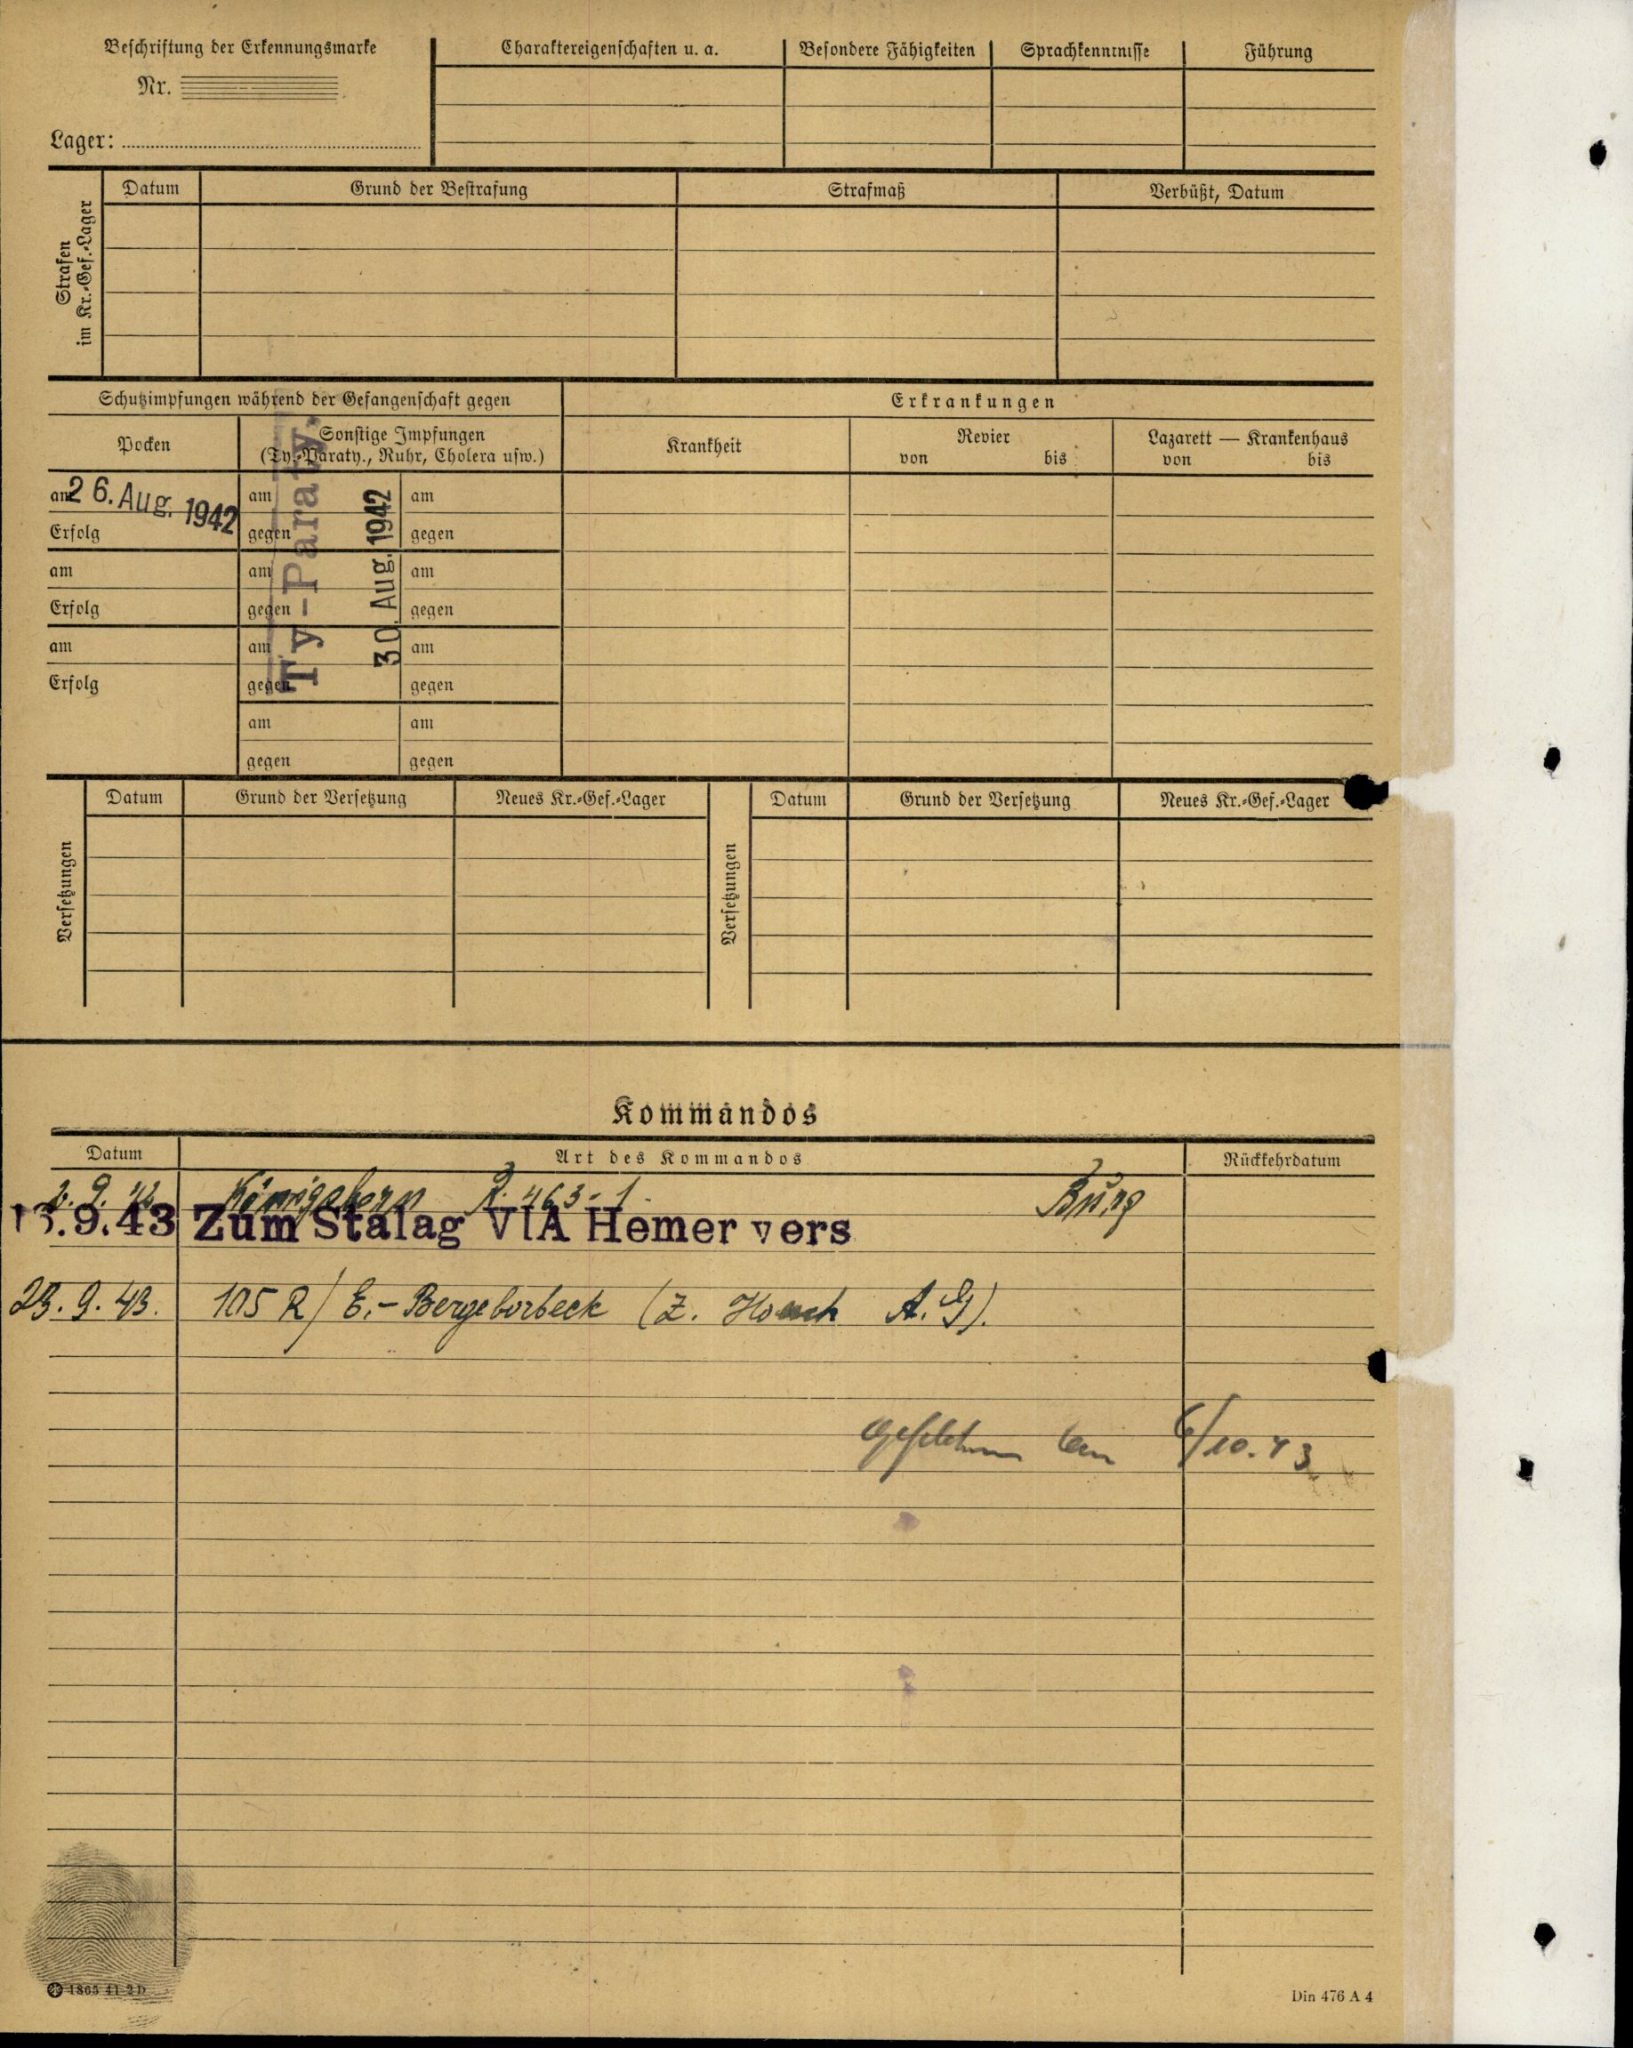 Beschriftung der Erkennungsmarke
Nr.
Lager:
Charaktereigenschaften u. a.
Besondere Fähigkeiten
Sprachkenntnisse
Führung
Strafen
im Kr.-Gef.-Lager
Datum
Grund der Bestrafung
Strafmaß
Verbüßt, Datum
Schutzimpfungen während der Gefangenschaft gegen
Erkrankungen
Pocken
Sonstige Impfungen
(Ty.-Paraty., Ruhr, Cholera usw.)
Krankheit
Revier
von bis
Lazarett — Krankenhaus
von bis
am 26. Aug. 1942
Erfolg
am
Erfolg
am
Erfolg
am
gegen
am
gegen
am
gegen
am
gegen
Ty-Paraty.
30. Aug. 1942
am
gegen
am
gegen
am
gegen
am
gegen
Versetzungen
Datum
Grund der Versetzung
Neues Kr.-Gef.-Lager
Versetzungen
Datum
Grund der Versetzung
Neues Kr.-Gef.-Lager
Kommandos
Datum
Art des Kommandos
Rückkehrdatum
2. 9. 42 Königsborn R. 463-1. Burg
13.9.43 Zum Stalag VIA Hemer vers
23. 9. 43. 105 R/ E.-Bergeborbeck (Z. A.G).
6/10.43
1865 41 2D
Din 476 A 4